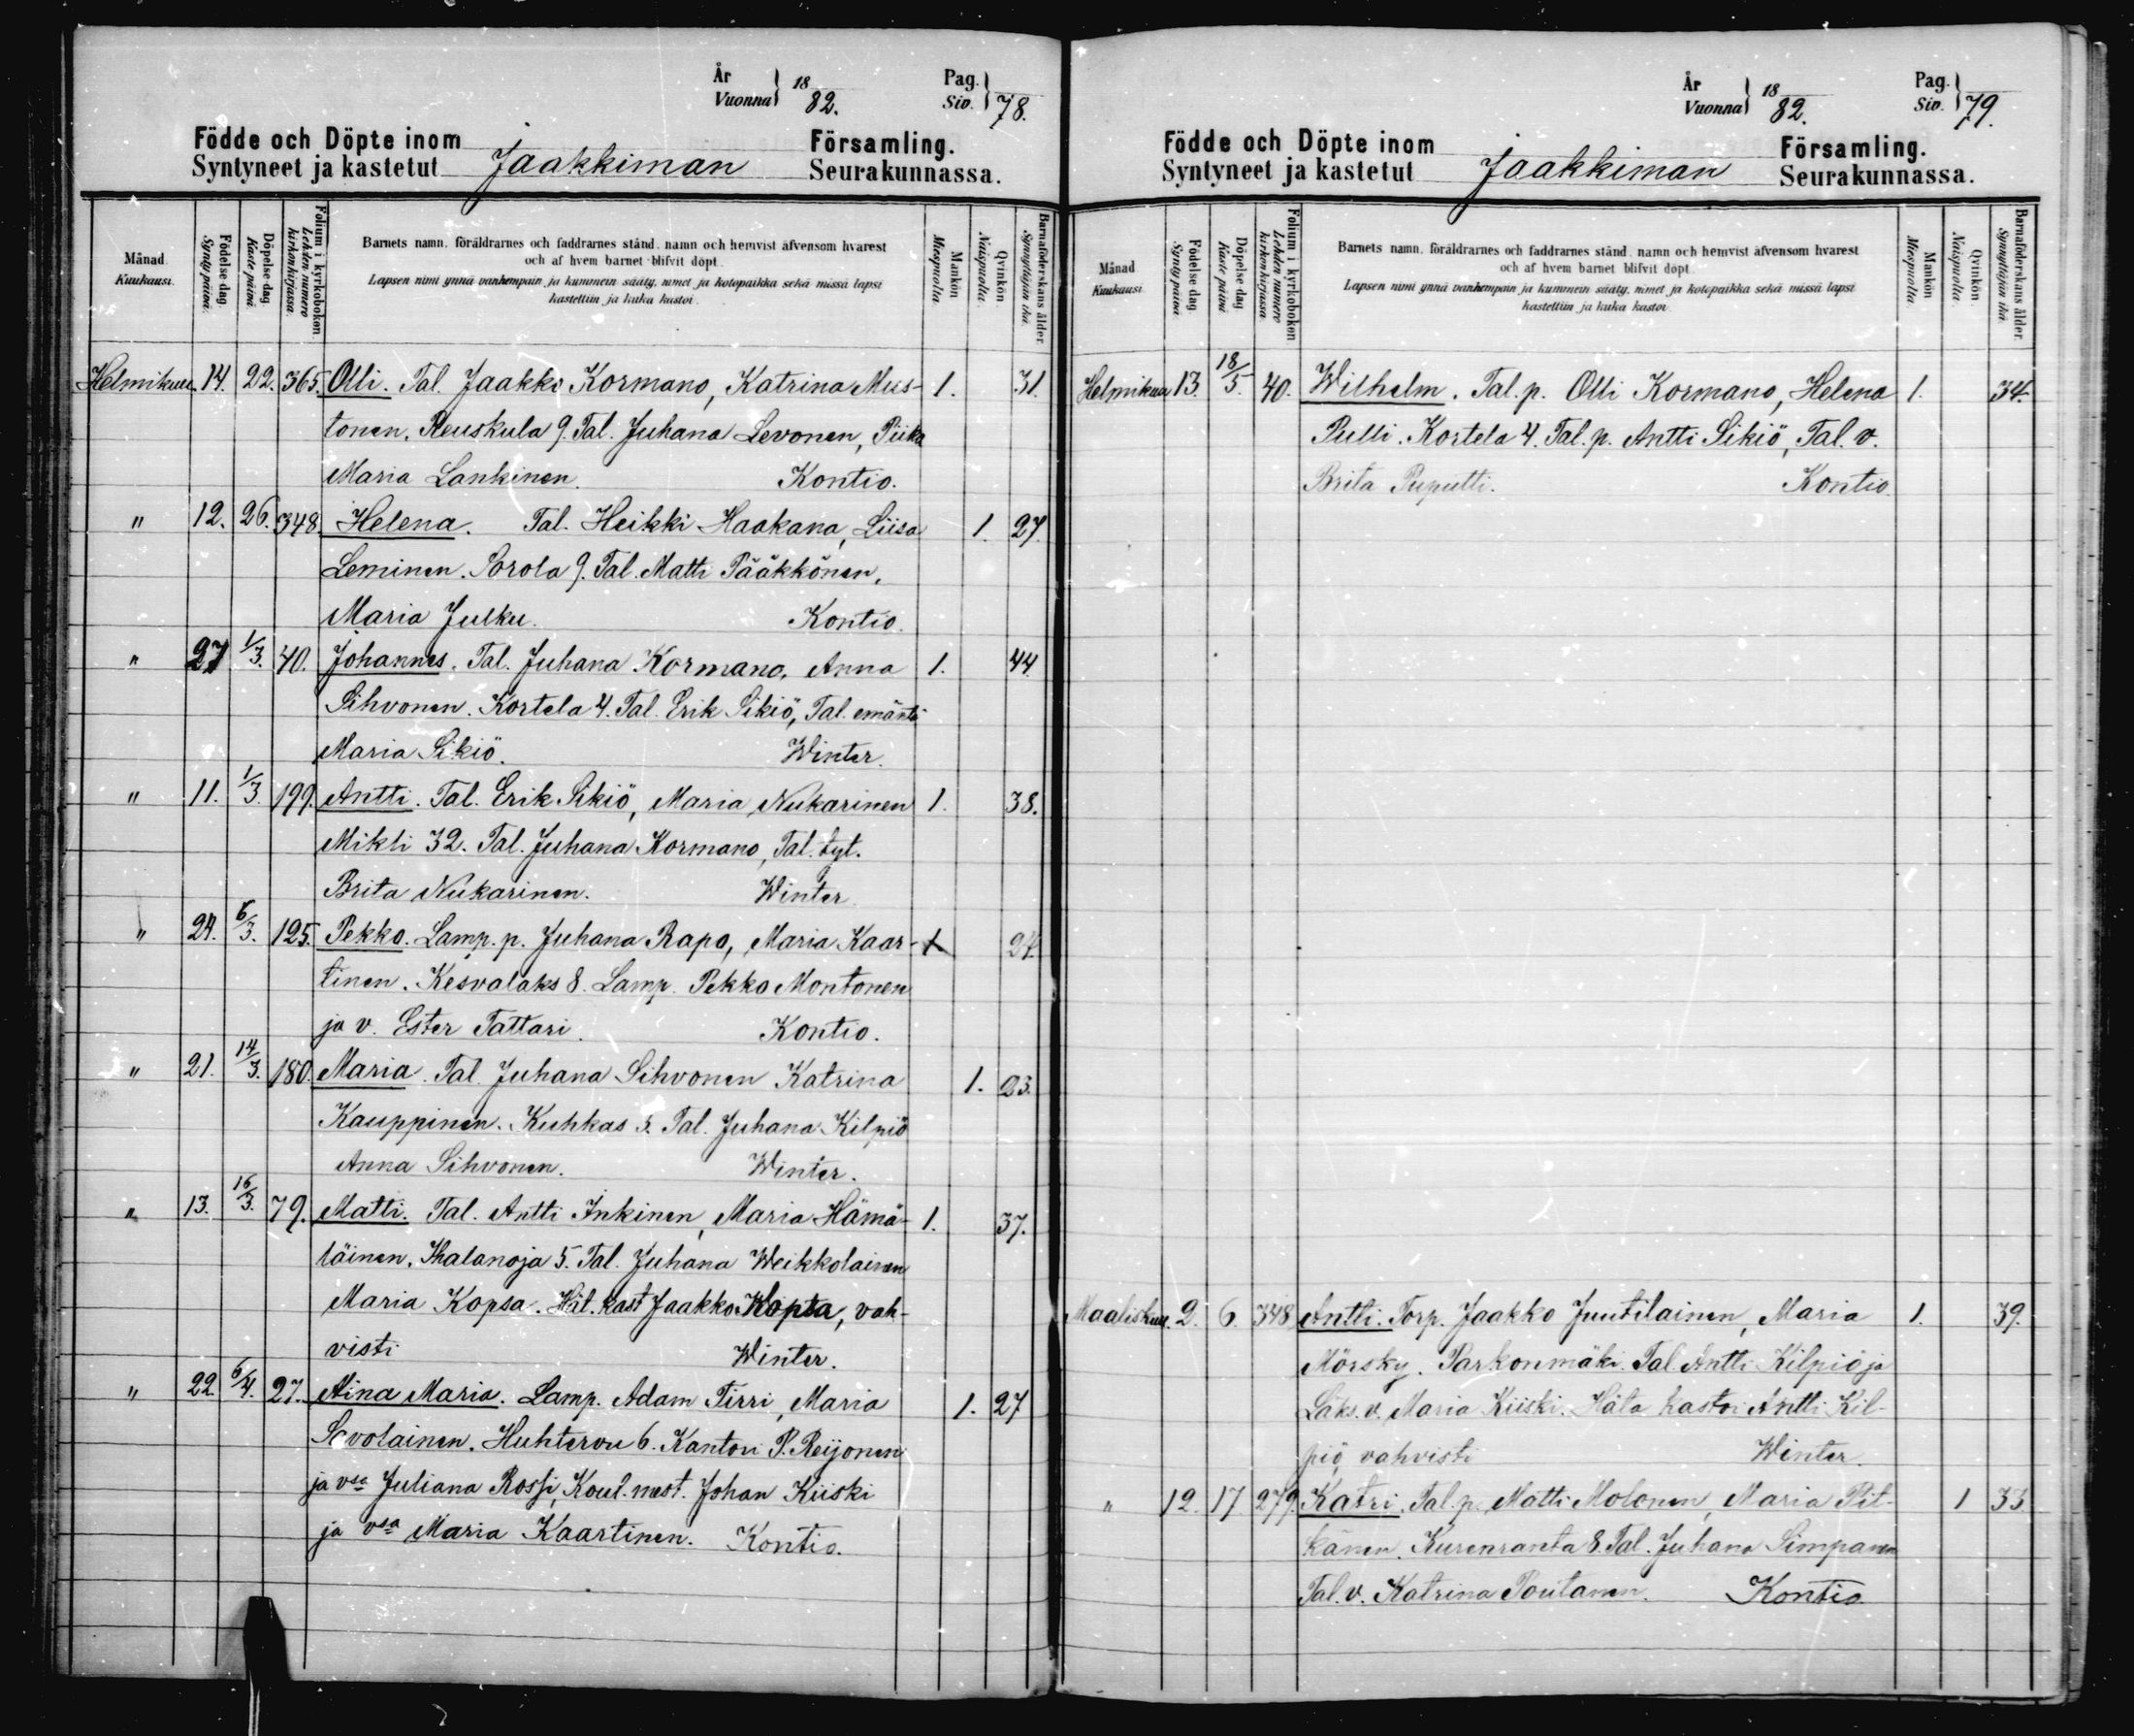 År
Vuonna } 18 82.
Pag.
Siv. } 78.
Födde och Döpte inom
Syntyneet ja kastetut Jaakkiman Församling.
Seurakunnassa.
Månad
Kuukausi.
Födelse dag.
Synty päivä.
Döpelse dag
Kaste päivä.
Folium i kyrkoboken
Lehden numero
kirkonkirjassa.
Barnets namn, föräldrarnes och faddrarnes stånd, namn och hemvist äfvensom hvarest
och af hvem barnet blifvit döpt.
Lapsen nimi ynnä vanhempain ja kummein sääty, nimet ja kotopaikka sekä missä lapsi
kastettiin ja kuka kastoi.
Mankön
Miespuolia.
Qvinkön
Naispuolia.
Barnaföderskans ålder.
Synnyttäjän ikä.
Helmikuu 14. 22. 365. Olli. Tal. Jaakko Kormano, Katrina Mus- 1. 31.
tonen. Reuskula 9. Tal. Juhana Levonen, Piika
Maria Lankinen. Kontio.
" 12. 26. 348. Helena. Tal. Heikki Haakana, Liisa 1. 27.
Leminen. Sorola 9. Tal. Matti Pääkkönen,
Maria Julku. Kontio.
" 27 1/3. 40. Johannes. Tal. Juhana Kormano, Anna 1. 44.
Sihvonen. Kortela 4. Tal. Erik Sikiö, Tal. emäntä
Maria Sikiö. Winter.
" 11. 1/3. 199. Antti. Tal. Erik Sikiö, Maria Nukarinen 1. 38.
Mikli 32. Tal. Juhana Kormano, Tal. tyt.
Brita Nukarinen. Winter.
" 24. 5/3. 125. Pekko. Lamp. p. Juhana Rapo, Maria Kaar- 1 24.
tinen. Kesvalaks 8. Lamp. Pekko Montonen
ja v. Ester Tattari. Kontio.
" 21. 14/3. 180. Maria. Tal. Juhana Sihvonen Katrina 1. 23.
Kauppinen. Kuhkas 3. Tal. Juhana Kilpiö
Anna Sihvonen. Winter.
" 13. 16/3. 79. Matti. Tal. Antti Inkinen, Maria Hämä- 1. 37.
läinen. Ihalanoja 5. Tal. Juhana Weikkolainen
Maria Kopsa. Hät. kast Jaakko Kopta, vah-
visti Winter.
" 22. 6/4. 27. Aina Maria. Lamp. Adam Tirri, Maria 1. 27
Savolainen. Huhtervu 6. Kantori P. Reijonen
ja vsa Juliana Rossi, Koul. mest. Johan Kiiski
ja vsa Maria Kaartinen. Kontio.
År
Vuonna } 18 82.
Pag.
Siv. } 79.
Födde och Döpte inom
Syntyneet ja kastetut Jaakkiman Församling.
Seurakunnassa.
Månad
Kuukausi
Födelse dag
Synty päivä
Döpelse dag
Kaste päivä
Folium i kyrkoboken
Lehden numero
kirkonkirjassa.
Barnets namn, föräldrarnes och faddrarnes stånd, namn och hemvist äfvensom hvarest
och af hvem barnet blifvit döpt.
Lapsen nimi ynnä vanhempain ja kummein sääty, nimet ja kotopaikka sekä missä lapsi
kastettiin ja kuka kastoi.
Mankön
Miespuolia.
Qvinkön
Naispuolia.
Barnaföderskans ålder.
Synnyttäjän ikä.
Helmikuu 13. 18/5. 40. Wilhelm. Tal. p. Olli Kormano, Helena 1. 34.
Pulli. Kortela 4. Tal. p. Antti Sikiö, Tal. v.
Brita Puputti. Kontio.
Maaliskuu. 2. 6. 348 Antti. Torp. Jaakko Juutilainen, Maria 1. 39.
Mörsky. Parkonmäki. Tal. Antti Kilpiö ja
Laks. v. Maria Kiiski. Häta kastoi Antti Kil-
piö, vahvisti Winter.
" 12. 17. 279. Katri. Tal. p. Matti Molonen, Maria Pit- 1 33
känen. Kurenranta 8. Tal. Juhana Simpanen
Tal. v. Katrina Poutanen. Kontio.